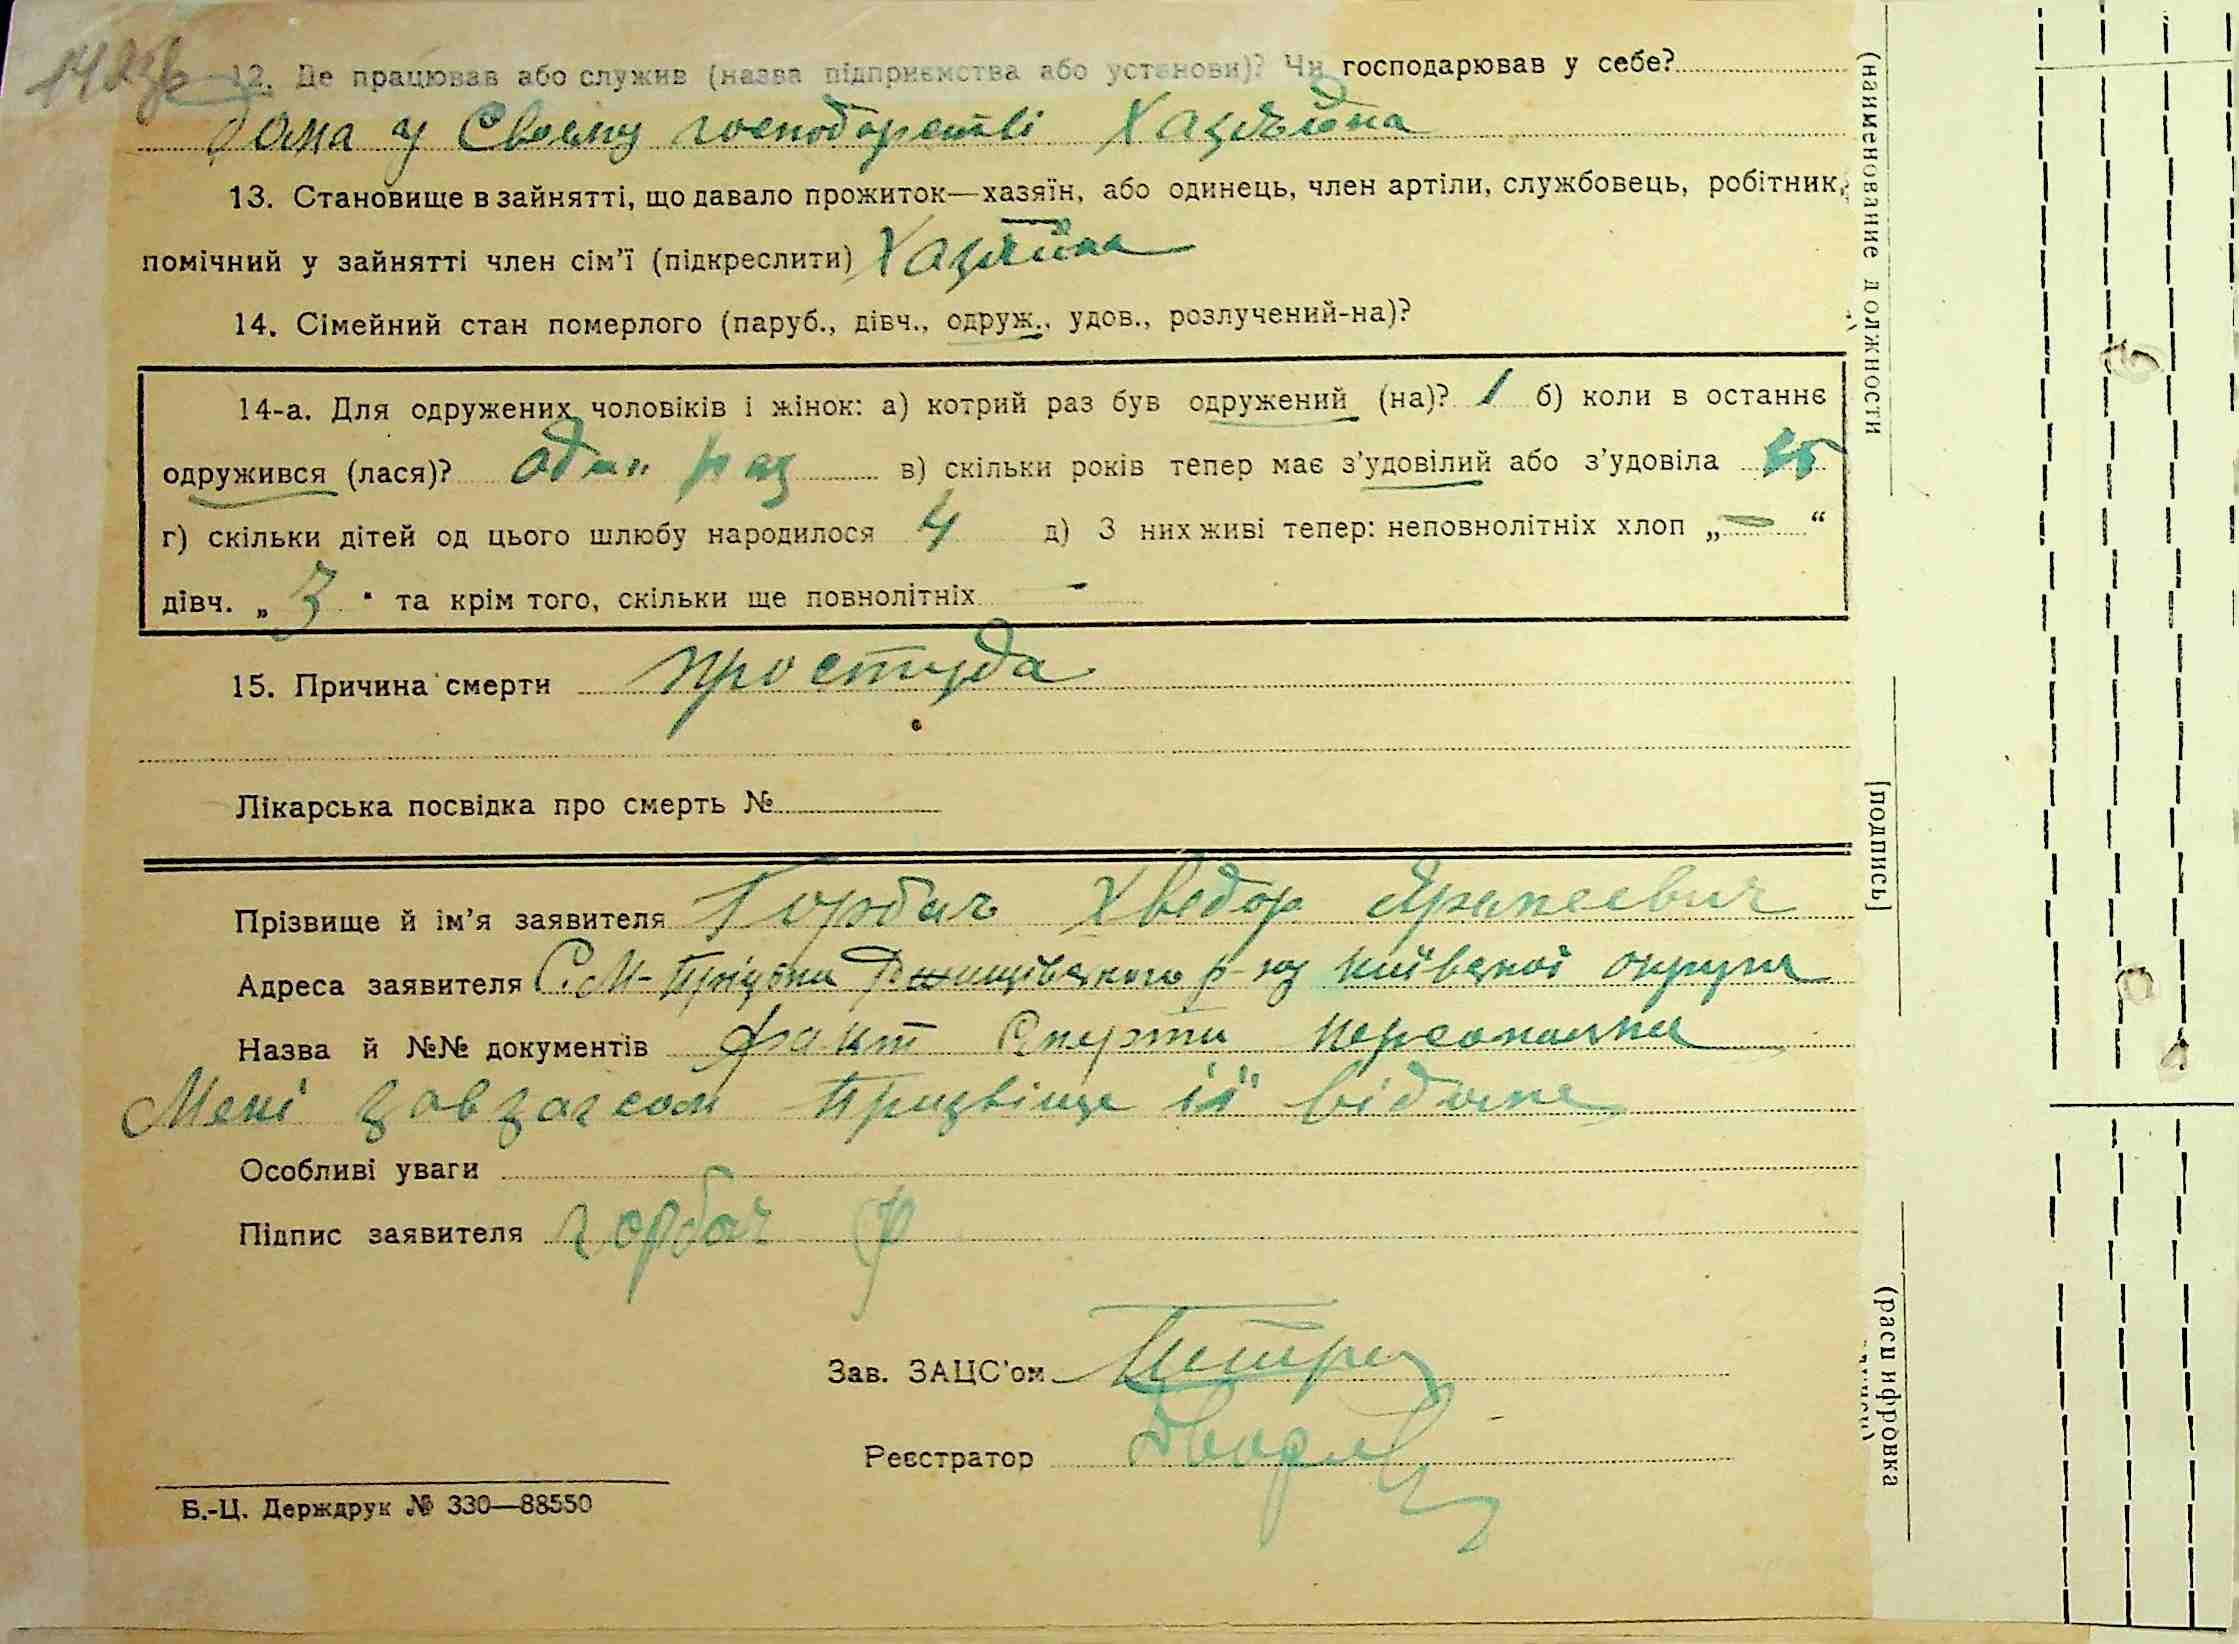 12. Де працював або служив (назва підприємства або установи)? Чи господарював у себе?
дома у Своєму господарстві Хазяїна
13. Становище в зайнятті, що давало прожиток—хазяїн, або одинець, член артіли, службовець, робітник,
помічний у зайнятті член сім’ї (підкреслити) Хазяїна
14. Сімейний стан померлого (паруб., дівч., одруж., удов., розлучений-на)?
14-а. Для одружених чоловіків і жінок: а) котрий раз був одружений (на)? 1 б) коли в останнє
одружився (лася)? один раз в) скільки років тепер має з’удовілий або з’удовіла
г) скільки дітей од цього шлюбу народилося 4 д) З них живі тепер: неповнолітніх хлоп „—“
дівч. „ 3 “ та крім того, скільки ще повнолітніх -
15. Причина смерти простуда
Лікарська посвідка про смерть №
Прізвище й ім’я заявителя Горбач Хведор
Адреса заявителя р-ну Київської округи
Назва й №№ документів факт Смерти персонально
Мені завзагсом призвіще її відоме
Особливі уваги
Підпис заявителя Горбач Ф
Зав. ЗАЦС’ом
Реєстратор
Б.-Ц. Держдрук № 330—88550
(наименование должности
[подпись]
(расшифровка